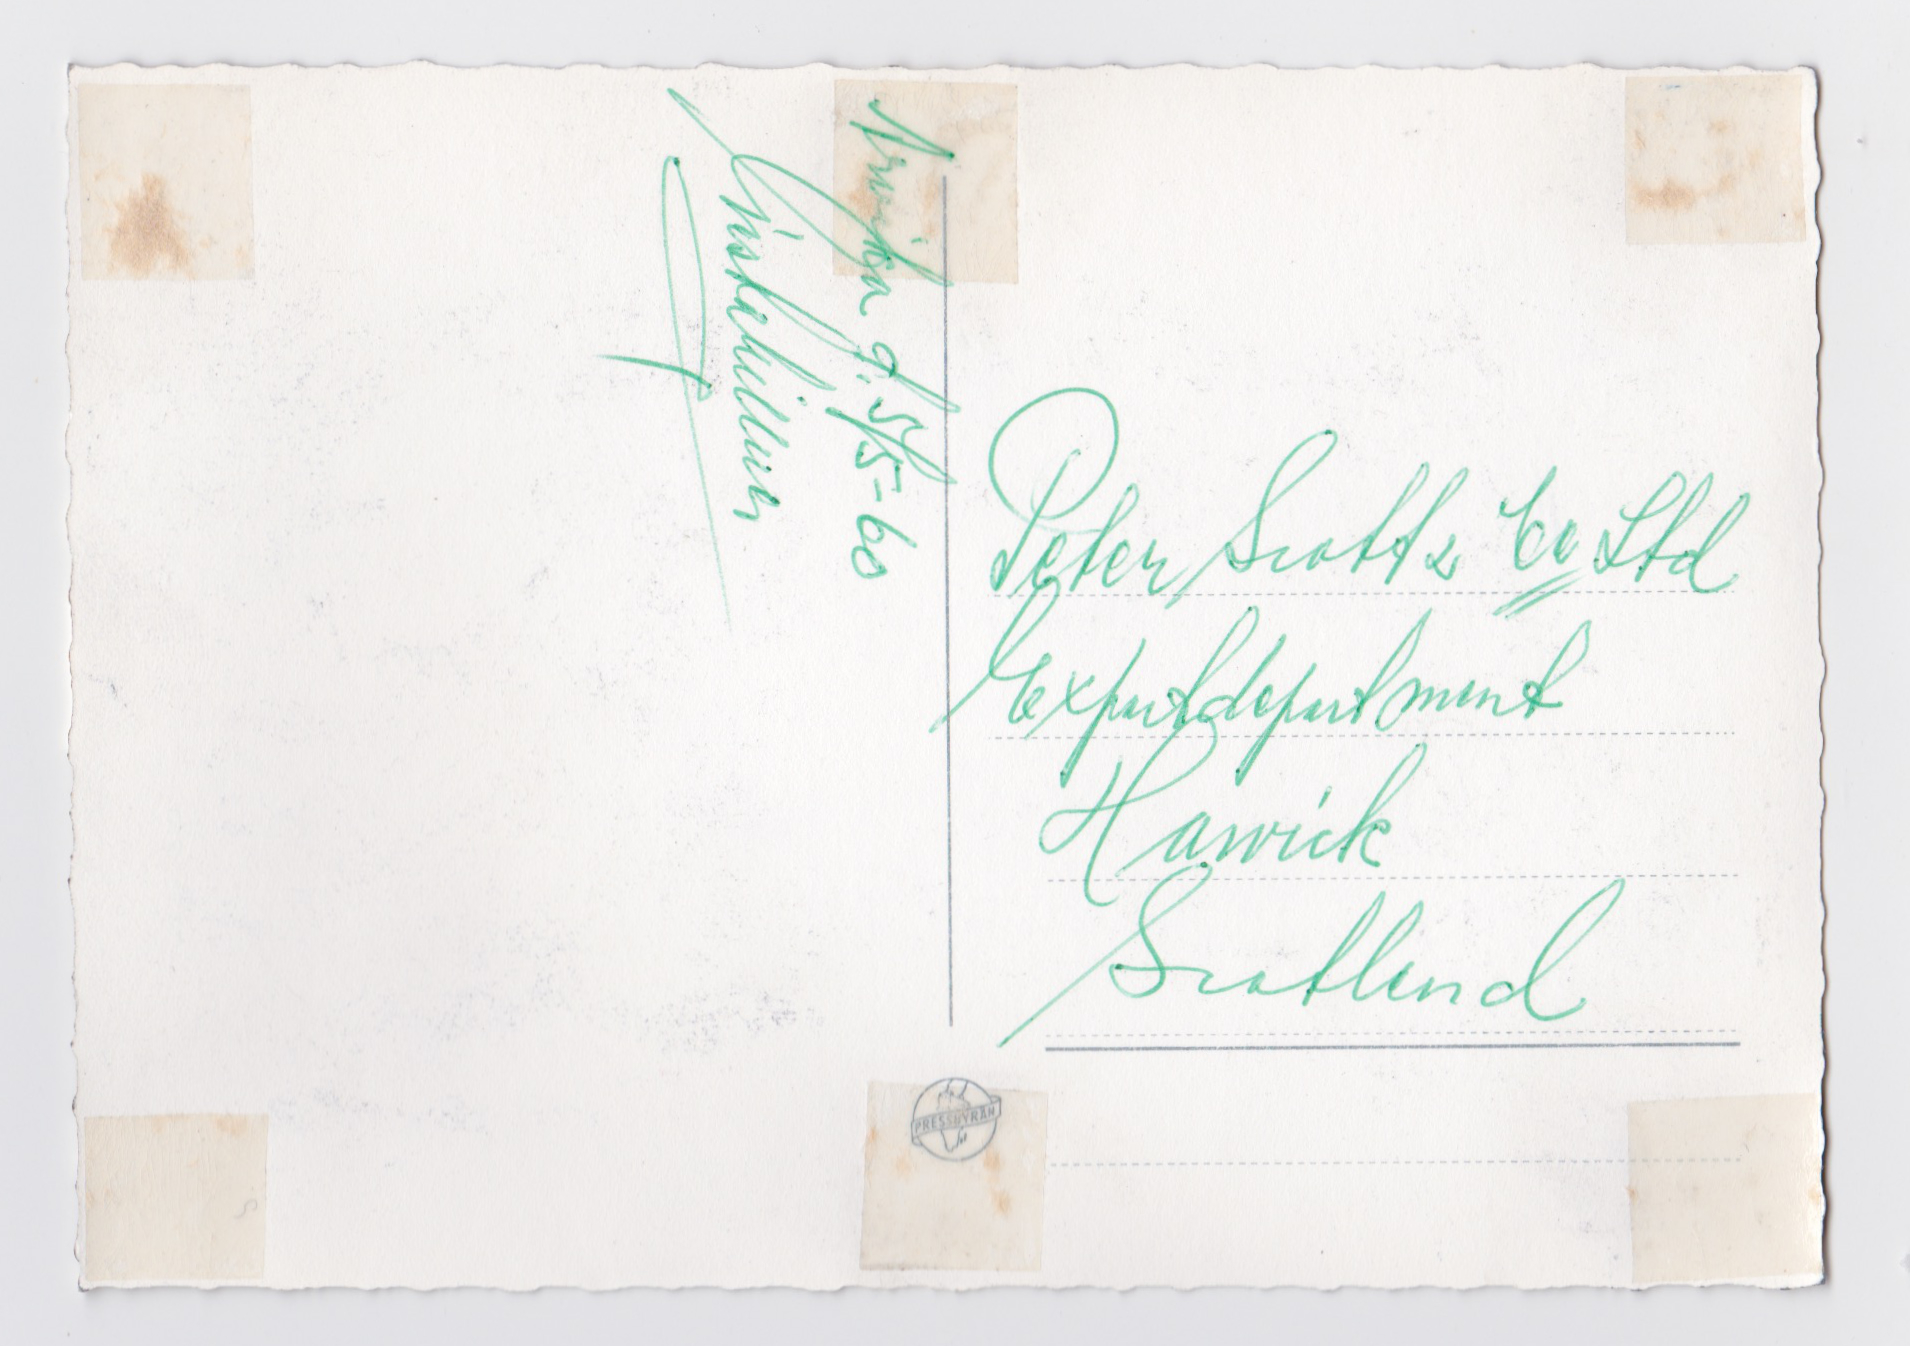 Arvika d. 5/5-60
Peter Scott & Co Ltd
Exportdepartment
Hawick
Scotland
PRESSBYRÅN